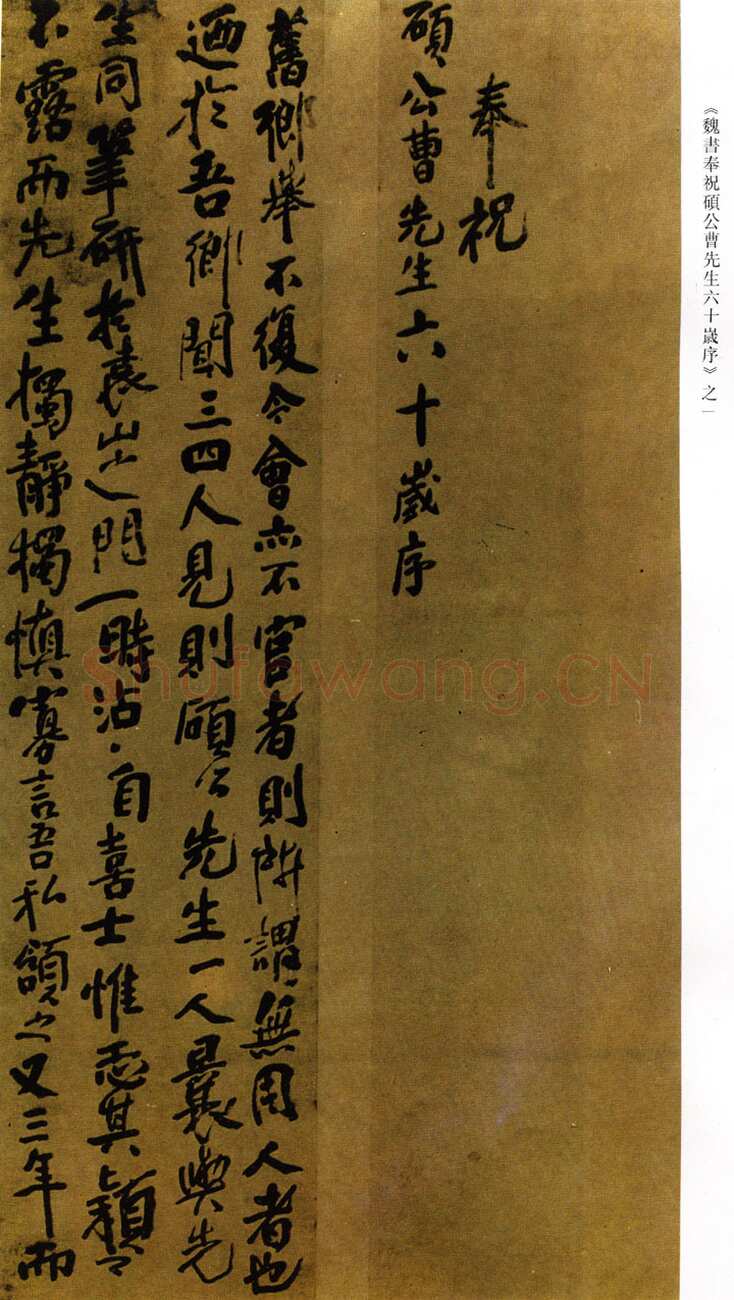 《魏書奉祝碩公曹先生六十歲序》之一
奉祝
碩公曹先生六十歲序
舊鄉舉不復令會亦不官者則所謂無用人者也
迺於吾鄉聞三四人見則碩公先生一人曩與先
生同筆研於袁山之門一時沾〻自喜士惟恐其穎〻
不露而先生獨靜獨慎寡言吾私頷之又三年而
Shufawang.CN